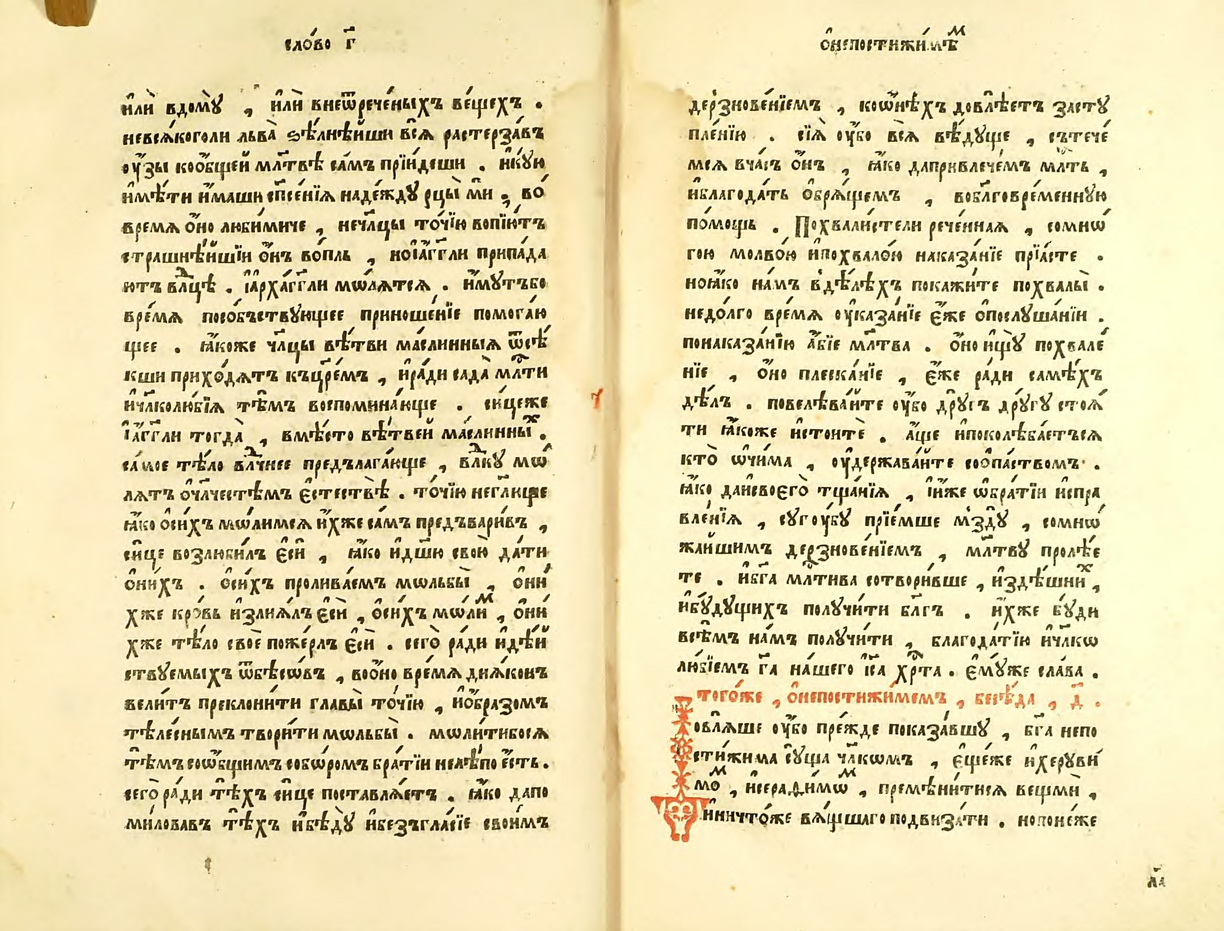 сло́во г҃
и҆лѝ вдомꙋ̀ , и҆лѝ внеѿрече́ныхъ ве́щехъ .
невсѧ́коголи льва̀ ѕѣлнѣ́йши всѧ̀ растерза́въ
оу҆́зы коо҆́бщей мл҃твѣ са́мъ прїи́деши . и҆кꙋ́ю
и҆мѣ́ти и҆́маши сп҃се́нїѧ наде́ждꙋ рцы́ ми , во́
времѧ о҆́но люби́миче , нечл҃цы то́чїю вопїю́тъ
страшнѣ́йшїи о҆́нъ во́пль , ноїа҆́гг҃ли припа́да
ютъ влⷣцѣ . ї҆арха́гг҃ли мѡ́лѧтсѧ . и҆́мꙋтъбо
вре́мѧ посо́бъствꙋющее приноше́нїе помога́ю
щее . ꙗ҆́коже чл҃цы вѣ́тви ма́слинныѧ ѿсѣ́
кши прихо́дѧтъ къцр҃е́мъ , и҆ра́ди сада̀ млⷭ҇ти
и҆чл҃колю́бїѧ тѣ́мъ воспомина́юще . си́цеже
ї҆а҆́гг҃ли тогда̀ , вмѣ́сто вѣ́твей ма́слинныⷯ .
са́мое тѣ́ло влⷣчнее предълага́юще , влⷣкꙋ мѡ́
лѧтъ о҆чл҃честѣ́мъ є҆стествѣ̀ . то́чїю негл҃юще
ꙗ҆́ко о҆си́хъ мѡ́лимсѧ и҆́хже са́мъ предъвари́въ ,
си́це возлюби́лъ є҆сѝ , ꙗ҆́ко и҆дш҃ю свою̀ да́ти
о҆ни́хъ . о҆си́хъ пролива́емъ мѡльбы̀ , о҆ни́
хже кро́вь и҆злїѧ́лъ є҆сѝ , о҆си́хъ мѡ́лиⷨ , о҆ни́
хже тѣ́ло своѐ поже́рлъ є҆сѝ . сего̀ ра́ди и҆дѣ́й
ствꙋемыхъ ѿбѣсѡ́въ , воо҆́но вре́мѧ дїѧ́конъ
вели́тъ преклони́ти главы̀ то́чїю , и҆о҆́бразомъ
тѣле́снымъ твори́ти мѡльбы̀ . мѡли́тибосѧ
тѣ́мъ сою҆́бщимъ собѡ́ромъ бра́тїи нелѣ́по є҆́сть .
сего̀ ра́ди тѣ́хъ си́це поставлѧ́етъ . ꙗ҆́ко дапо
ми́ловавъ тѣ́хъ и҆бѣдꙋ̀ и҆безъгла́сїе свои́мъ
о҆непостижи́мѣⷨ
дерзнове́нїемъ , коѡ҆нѣ́хъ довлѣ́етъ застꙋ
пле́нїю . сїѧ̀ оу҆́бо всѧ̀ вѣ́дꙋще , сътече́
мсѧ вча́съ о҆́нъ , ꙗ҆́ко даприлвече́мъ млⷭ҇ть ,
и҆благода́ть о҆брѧ́щемъ , вобл҃говре́меннꙋю
по́мощь . Похвали́стели рече́ннаѧ , сомно́
гою молво́ю и҆похвало́ю наказа́нїе прїѧ́сте .
ноꙗ҆́ко на́мъ вдѣ́лѣхъ покажи́те похвалы̀ .
недо́лго вре́мѧ оу҆каза́нїе є҆́же о҆послꙋша́нїи .
понаказа́нїю а҆́бїе мл҃тва . о҆но́ ищꙋ̀ похвале́
нїе , о҆́но плеска́нїе , є҆́же ра́ди самѣ́хъ
дѣ́лъ . повелѣва́йте оу҆́бо дрꙋ́гъ дрꙋ́гꙋ стоѧ́
ти ꙗ҆́коже и҆стоитѐ . а҆́ще и҆поколѣ́баетъсѧ
кто̀ ѡ҆чи́ма , оу҆держава́йте соо҆па́ствомъ .
ꙗ҆́ко даи҆своегѡ̀ тща́нїѧ , и҆́нже ѡ҆́братїи и҆спра
вле́нїѧ , сꙋгꙋ́бꙋ прїе́мше мздꙋ̀ , сомнѡ
жа́йшимъ дерзнове́нїемъ , мл҃твꙋ пролѣ́е
те . и҆бг҃а млⷭ҇тива сотвори́вше , и҆здѣ́шниⷯ ,
и҆бꙋ́дꙋщихъ полꙋчи́ти бл҃гъ . и҆́хже бꙋ́ди
всѣ́мъ на́мъ полꙋчи́ти , благода́тїю и҆чл҃кѡ
лю́бїемъ гⷭ҇а на́шего і҆с҃а хрⷭ҇та̀ . є҆мꙋ́же сла́ва .
тогѡ́же , о҆непостижи́мемъ , бесѣ́да , д҃ .
Довлѧ́ше оу҆́бо пре́жде показа́вшꙋ , бг҃а непо
стижи́ма сꙋ́ща чл҃кѡмъ , є҆ще́же и҆херꙋви́
мѡⷨ , и҆серафи́мѡⷨ , премѣни́тисѧ ве́щми ,
и҆ничто́же вѧ́щшаго подвиза́ти . нопоне́же
л҃а